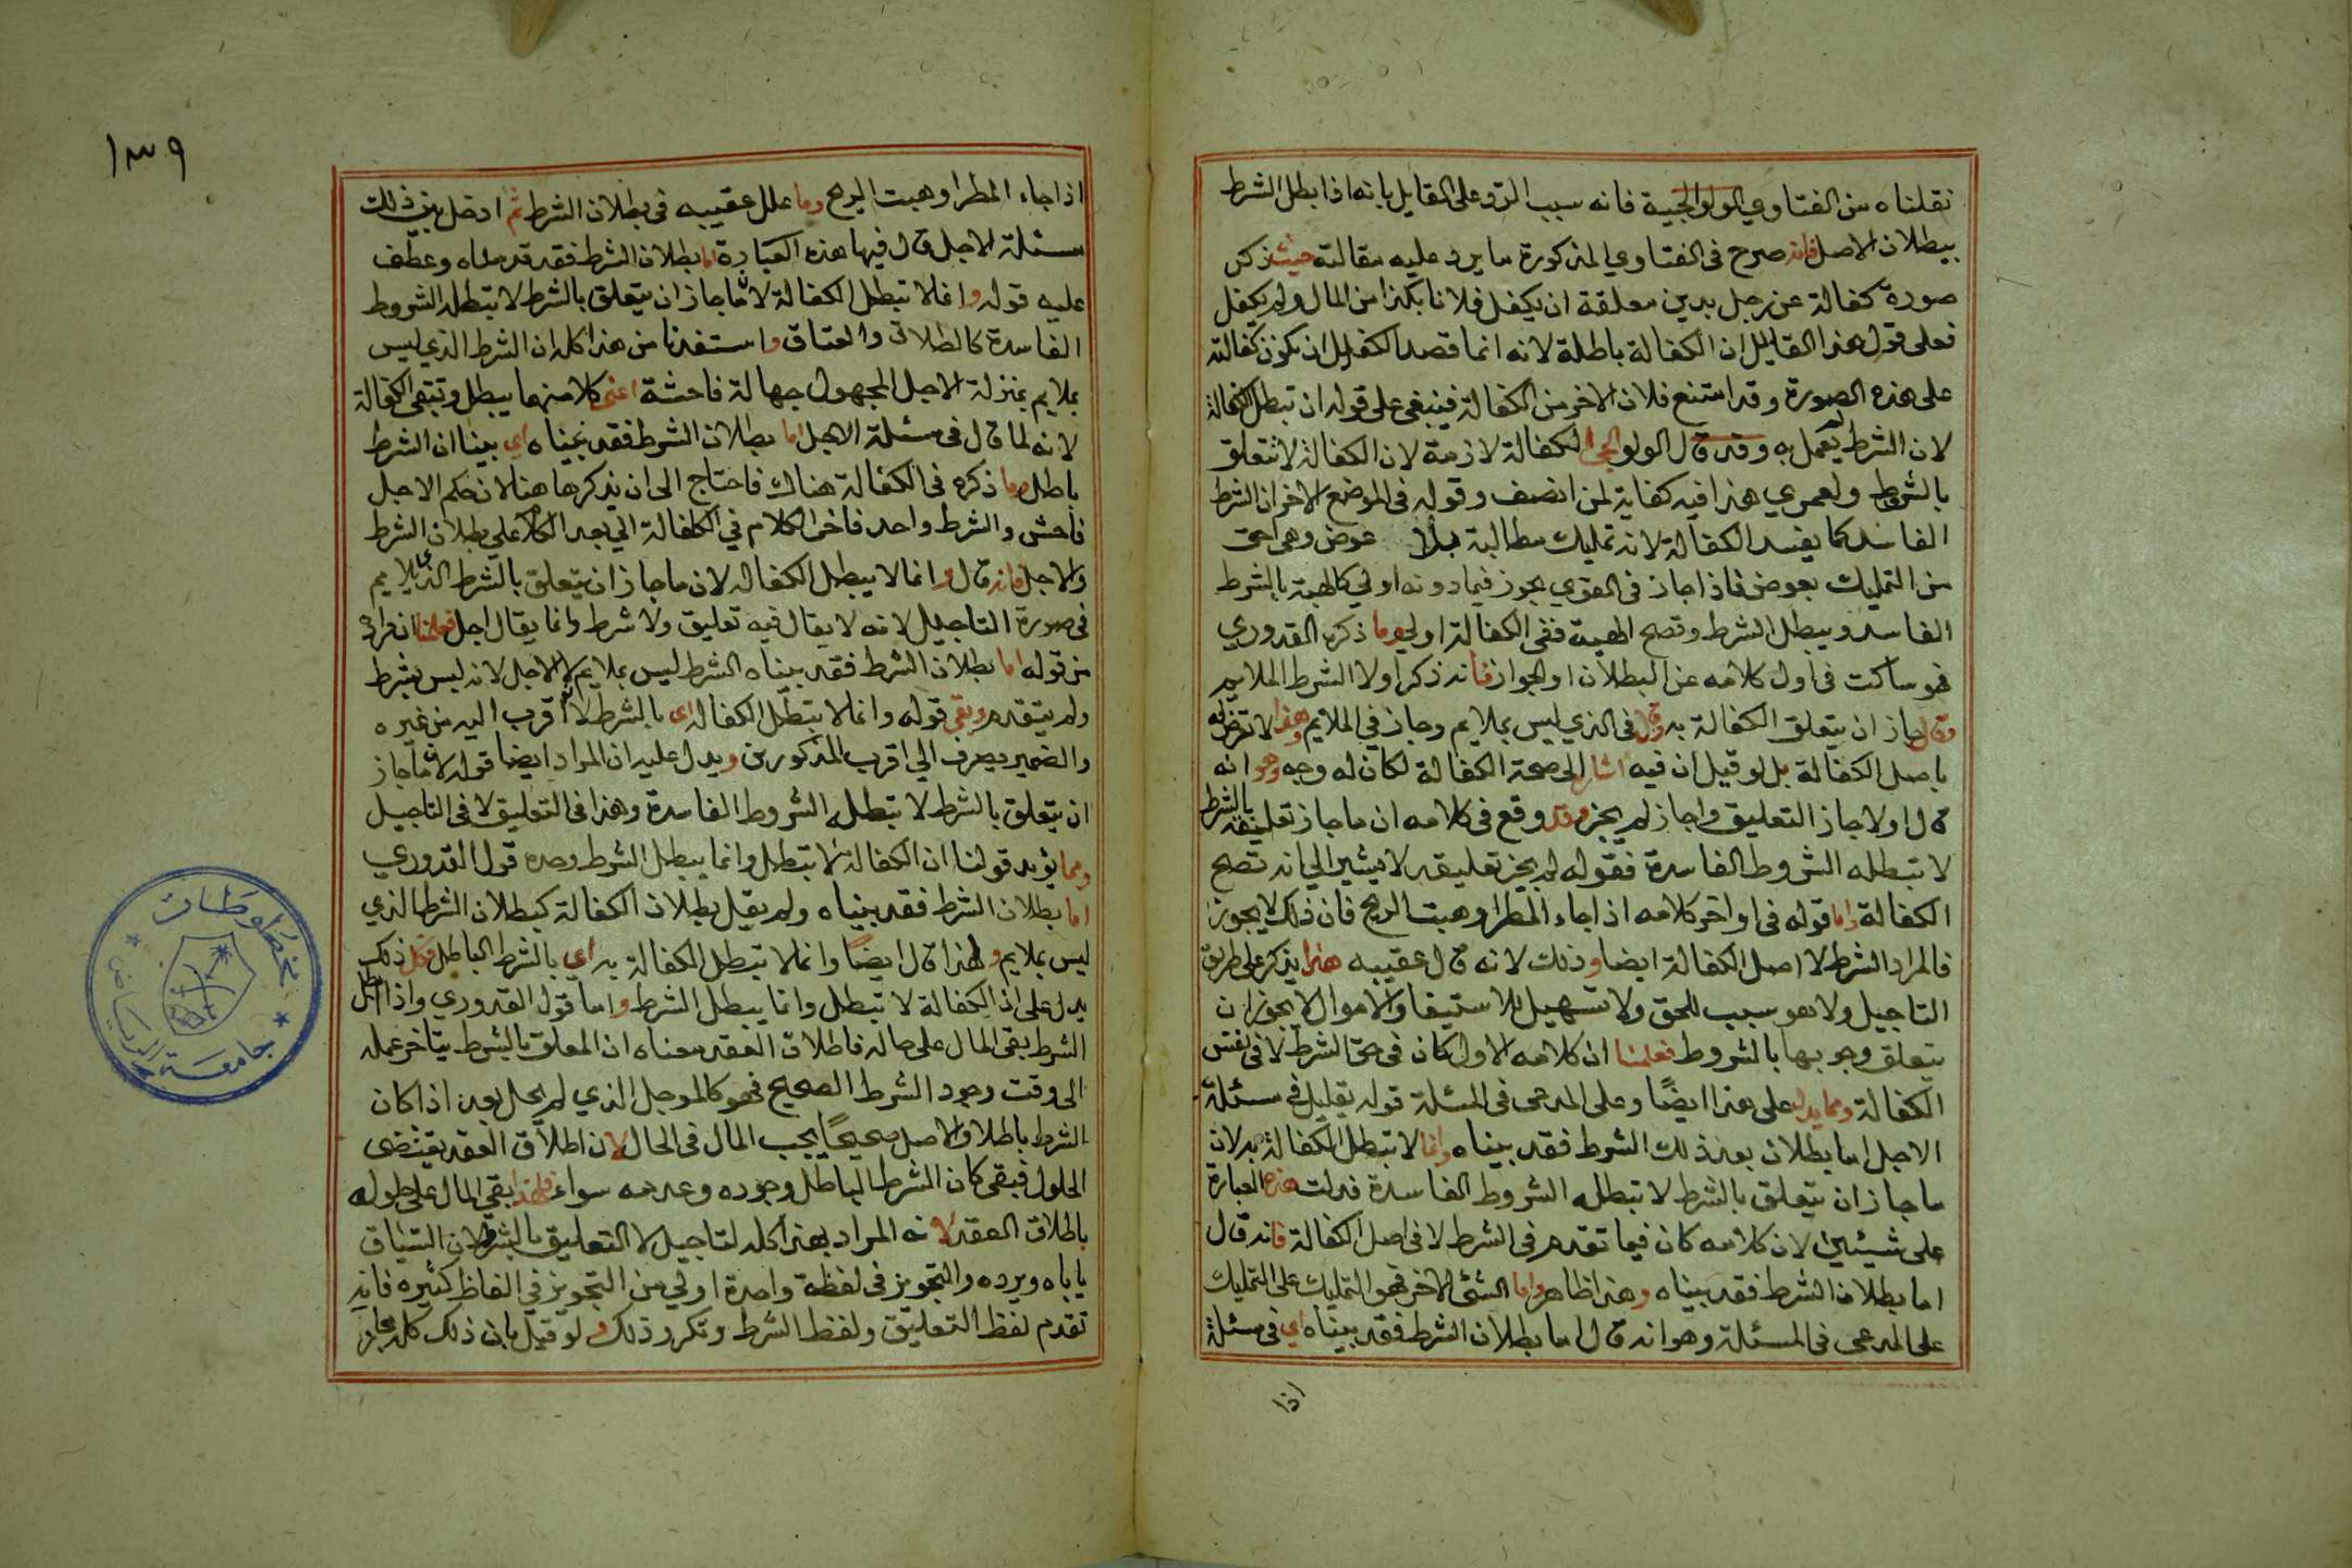 نقلناه من الفتاوي الولوالجية فانه سبب الرد على القايل بانه اذا بطل الشرط
يبطلان الاصل فانه صرح في الفتاوي المذكورة ما يرد عليه مقالته حيث ذكر
صورة كفالة عن رجل بدين معلقة ان يكفل فلانا بكذا من المال ولم يكفل
فعلى قول هذا القايل ان الكفالة باطلة لانه انما قصد الكفيل ان يكون كفالته
على هذه الصورة وقد امتنع فلان الاخر من الكفالة فينبغي على قوله ان تبطل الكفالة
لان الشرط لم يعمل به وقد قال الولوالجي الكفالة لازمة لان الكفالة لا تتعلق
بالشروط ولعمري هذا فيه كفاية لمن انصف وقوله في الموضع الاخر ان الشرط
الفاسد كما يفسد الكفالة لانه تمليك مطالبة بلا عوض وهي احق
من التمليك بعوض فاذا جاز في القوي يجوز فيما دونه اولي كالهبة بالشرط
الفاسد ويبطل الشرط وتصح الهبة ففي الكفالة اولي وما ذكره القدوري
فهو ساكت في اول كلامه عن البطلان او الجواز فانه ذكر اولا الشرط الملايم
وقال جاز ان يتعلق الكفالة به وقال في الذي ليس بملايم وجاز في الملايم وهذا لا تعرض له
باصل الكفالة بل لو قيل ان فيه اشار الى صحة الكفالة لكان له وجه وهو انه
قال اولا جاز التعليق واجاز لم يجز وقد وقع في كلامه ان ما جاز تعليقه بالشرط
لا تبطله الشروط الفاسدة فقوله لم يجز تعليقه لا يشير الي انه تصح
الكفالة واما قوله في اواخر كلامه اذا جاء المطر او هبت الريح فان ذلك لا يجوز
فالمراد الشرط لا اصل الكفالة ايضا وذلك لانه قال عقيبه هذا يذكر على طريق
التاجيل ولا هو سبب للحق ولا تسهيل للاستيفا والاموال لا يجوز ان
يتعلق وجوبها بالشروط فعلمنا ان كلامه الاول كان في حق الشرط لا في نفس
الكفالة ومما يدل على هذا ايضًا وعلى المدعى في المسئلة قوله بقليل في مسئلة
الاجل اما بطلان بعد ذلك الشرط فقد بيناه وانما لا تبطل الكفالة به لان
ما جاز ان يتعلق بالشرط لا تبطله الشروط الفاسدة فدلت هذه العبارة
على شيئين لان كلامه كان فيما تقدم في الشرط لا في اصل الكفالة فانه قال
اما بطلان الشرط فقد بيناه وهذا ظاهر واما الشئ الاخر فهو التمليك على التمليك
على المدعى في المسئلة وهو انه قال اما بطلان الشرط فقد بيناه اي في مسئلة
اذا
١٣٩
اذا جاء المطر او هبت الريح وما علل عقيبه في بطلان الشرط ثم ادخل بين ذلك
مسئلة الاجل قال فيها هذه العبارة اما بطلان الشرط فقد قدمناه وعطف
عليه قوله وانما لا تبطل الكفالة لان ما جاز ان يتعلق بالشرط لا تبطله الشروط
الفاسدة كالطلاق والعتاق واستفدنا من هذا كله ان الشرط الذي ليس
بملايم بمنزلة الاجل المجهول جهالة فاحشة اعني كلا منهما يبطل وتبقى الكفالة
لانه لما قال في مسئلة الاجل اما بطلان الشرط فقد بيناه اي بينا ان الشرط
باطل وما ذكره في الكفالة هناك فاحتاج الى ان يذكرها هنا لان حكم الاجل
فاحش والشرط واحد فاخر الكلام في الكفالة الي بعد الكلام على بطلان الشرط
والاجل فانه قال وانما لا يبطل الكفالة لان ما جاز ان يتعلق بالشرط الذي لا يلايم
في صورة التاجيل لانه لا يقال فيه تعليق ولا شرط وانما يقال اجل فعلمنا ان مراده
من قوله اما بطلان الشرط فقد بيناه الشرط ليس بملايم لا الاجل لانه ليس بشرط
ولم يتقدم وبقى قوله وانما لا يبطل الكفالة اي بالشرط لانه اقرب اليه من غيره
والضمير يصرف الي اقرب المذكورين ويدل عليه ان المراد ايضا قوله لان ما جاز
ان يتعلق بالشرط لا تبطله الشروط الفاسدة وهذا في التعليق لا في التاجيل
ومما يؤيد قولنا ان الكفالة لا تبطل وانما يبطل الشرط وحده قول القدوري
اما بطلان الشرط فقد بيناه ولم يقل بطلان الكفالة كبطلان الشرط الذي
ليس بملايم ولهذا قال ايضًا وانما لا تبطل الكفالة به اي بالشرط الباطل فكل ذلك
يدل على ان الكفالة لا تبطل وانما يبطل الشرط واما قول القدوري واذا بطل
الشرط بقى المال على حاله فاطلاق العقد معناه ان المعلق بالشرط يتاخر عمله
الى وقت وجود الشرط الصحيح فهو كالموجل الذي لم يحل بعد اذا كان
الشرط باطلا والاصل صحيحًا يجب المال في الحال لان اطلاق العقد يقتضى
الحلول فبقى كان الشرط الباطل وجوده وعدمه سواء فلهذا بقى المال على حلوله
باطلاق العقد لانه المراد بهذا كله التاجيل لا التعليق بالشرط لان السياق
ياباه ويرده والتجويز في لفظة واحدة اولي من التجويز في الفاظ كثيره فانه
تقدم لفظ التعليق ولفظ الشرط وتكرر ذلك ولو قيل بان ذلك كله مجاز
مخطوطات
جامعة الرياض